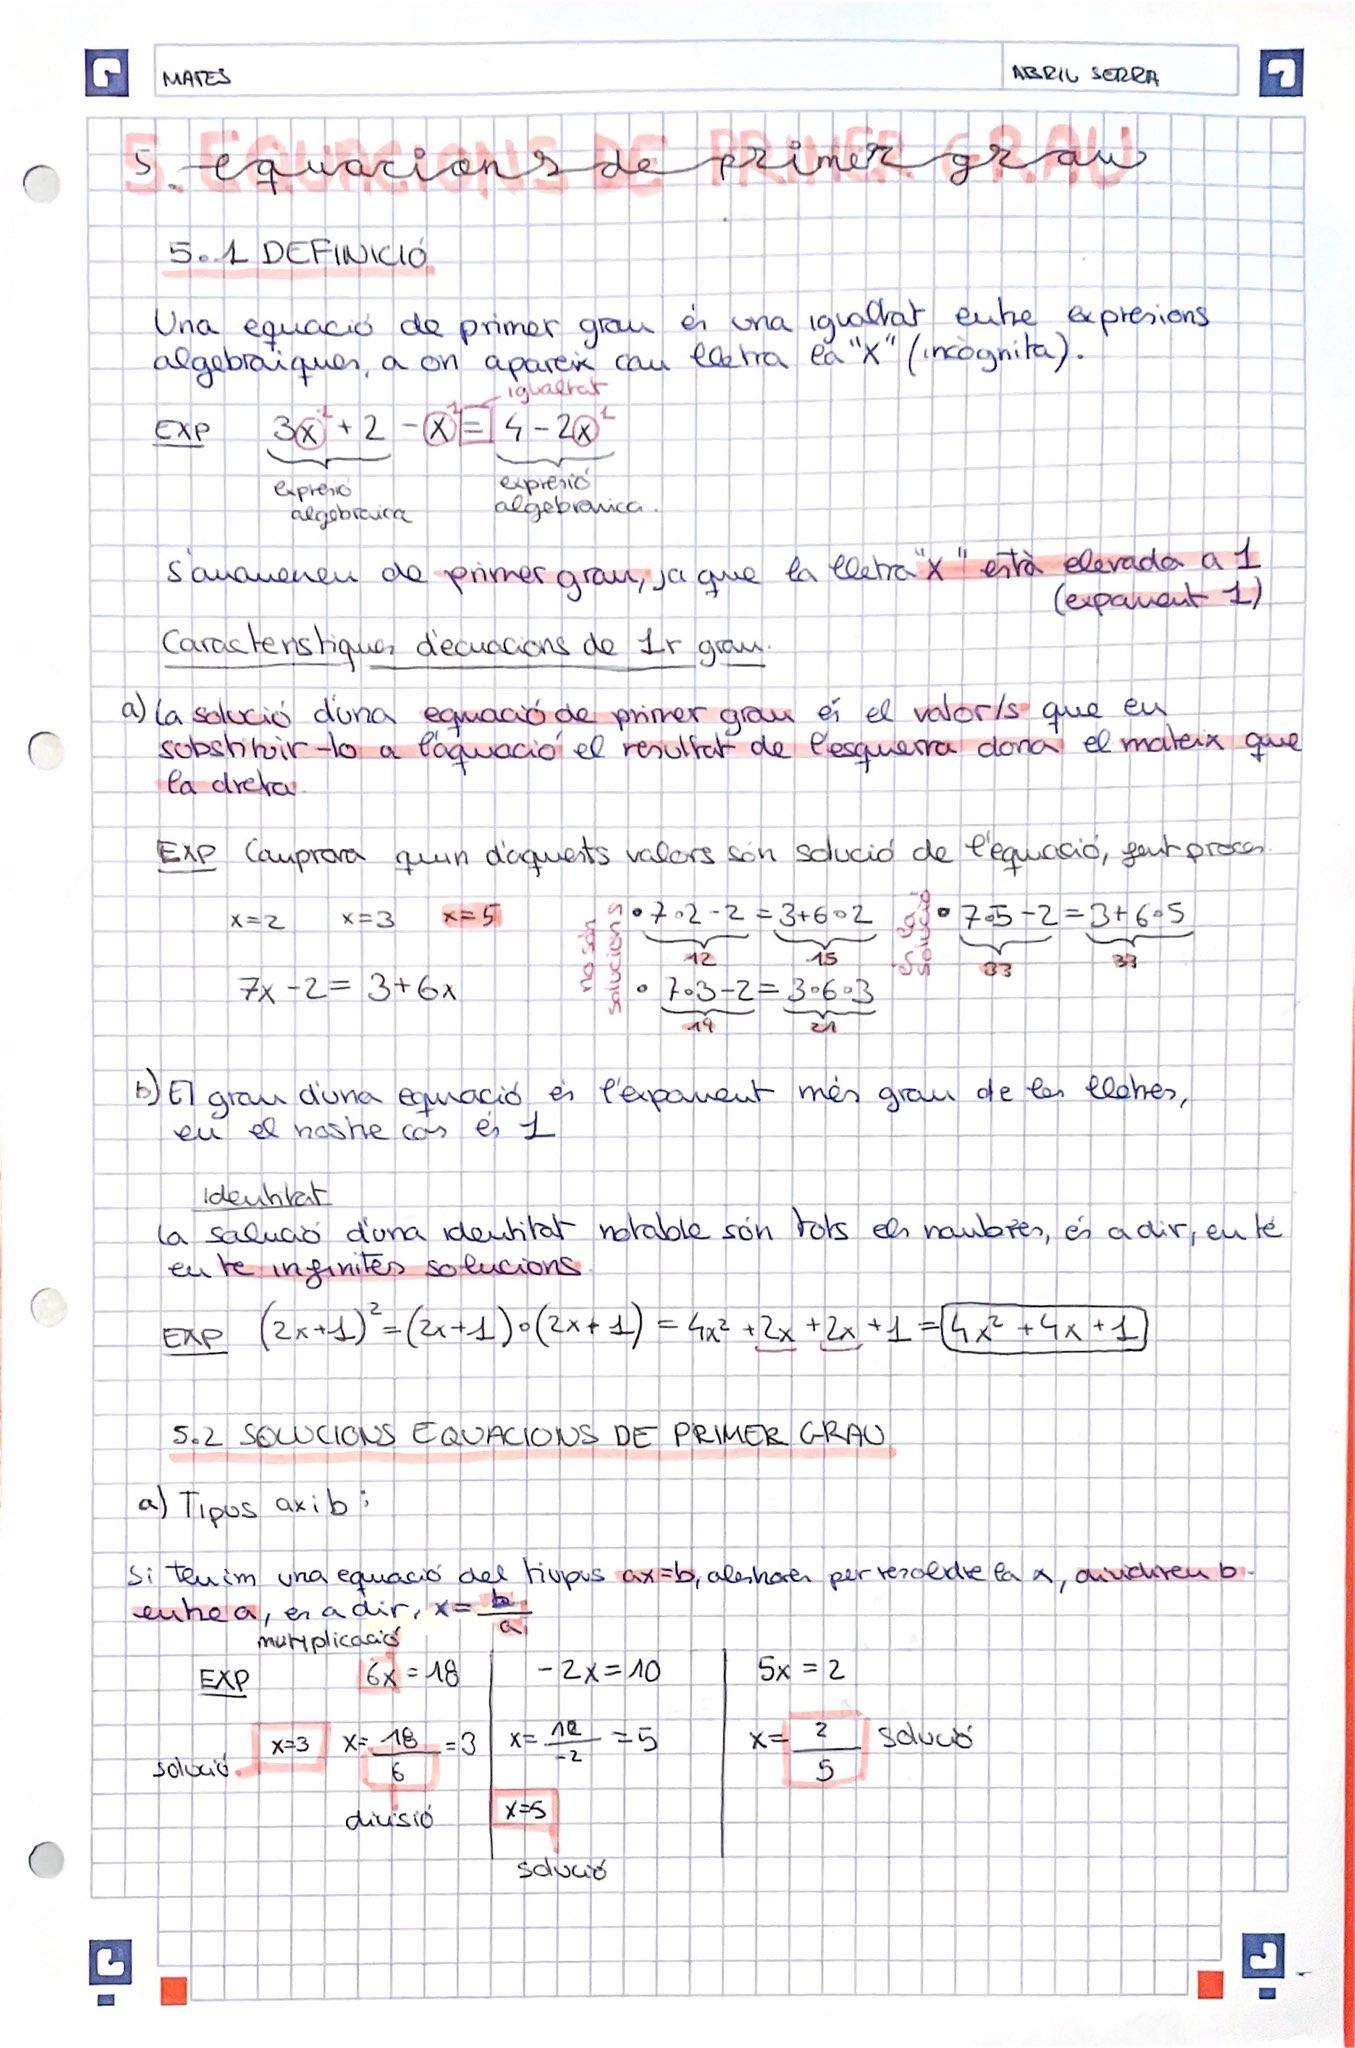 MATES
ABRIL SERRA
5. equacions de primer grau
5.1 DEFINICIÓ
Una equació de primer grau és una igualtat entre expresions
algebraiques, a on apareix cau lletra la "X" (incògnita).
igualtat
EXP 3x¹ + 2 - x¹ = 4 - 2x¹
expresió algebraica
expresió algebraica.
S'anomenen de primer grau, ja que la lletra "x" està elevada a 1
(exponent 1)
Característiques d'ecuacions de 1r grau.
a) La solució d'una equació de primer grau és el valor/s que en
substituir-lo a l'aquació el resultat de l'esquerra dona el mateix que
la dreta.
EXP Comprova quin d'aquests valors són solució de l'equació, fent proces.
x=2 x=3 x=5
7x - 2 = 3+6x
no són solucions
• 7·2-2 = 3+6·2
12 15
• 7·3-2 = 3·6·3
19 21
és la solució
• 7·5-2 = 3+6·5
33 33
b) El grau d'una equació és l'exponent més grau de les lletres,
en el nostre cas és 1
Identitat
La solució d'una identitat notable són tots els nombres, és a dir, en té
en te infinites solucions.
EXP (2x+1)² = (2x+1)·(2x+1) = 4x² + 2x + 2x + 1 = 4x² + 4x + 1
5.2 SOLUCIONS EQUACIONS DE PRIMER GRAU
a) Tipus axib:
Si tenim una equació del tiupus ax=b, aleshores per resoldre la x, dividirem b
entre a, és a dir, x = b/a
multiplicació
EXP 6x = 18 -2x = 10 5x = 2
solució. x=3 x = 18/6 = 3 x = 10/-2 = 5 x = 2/5 solució
divisió x=5
solució